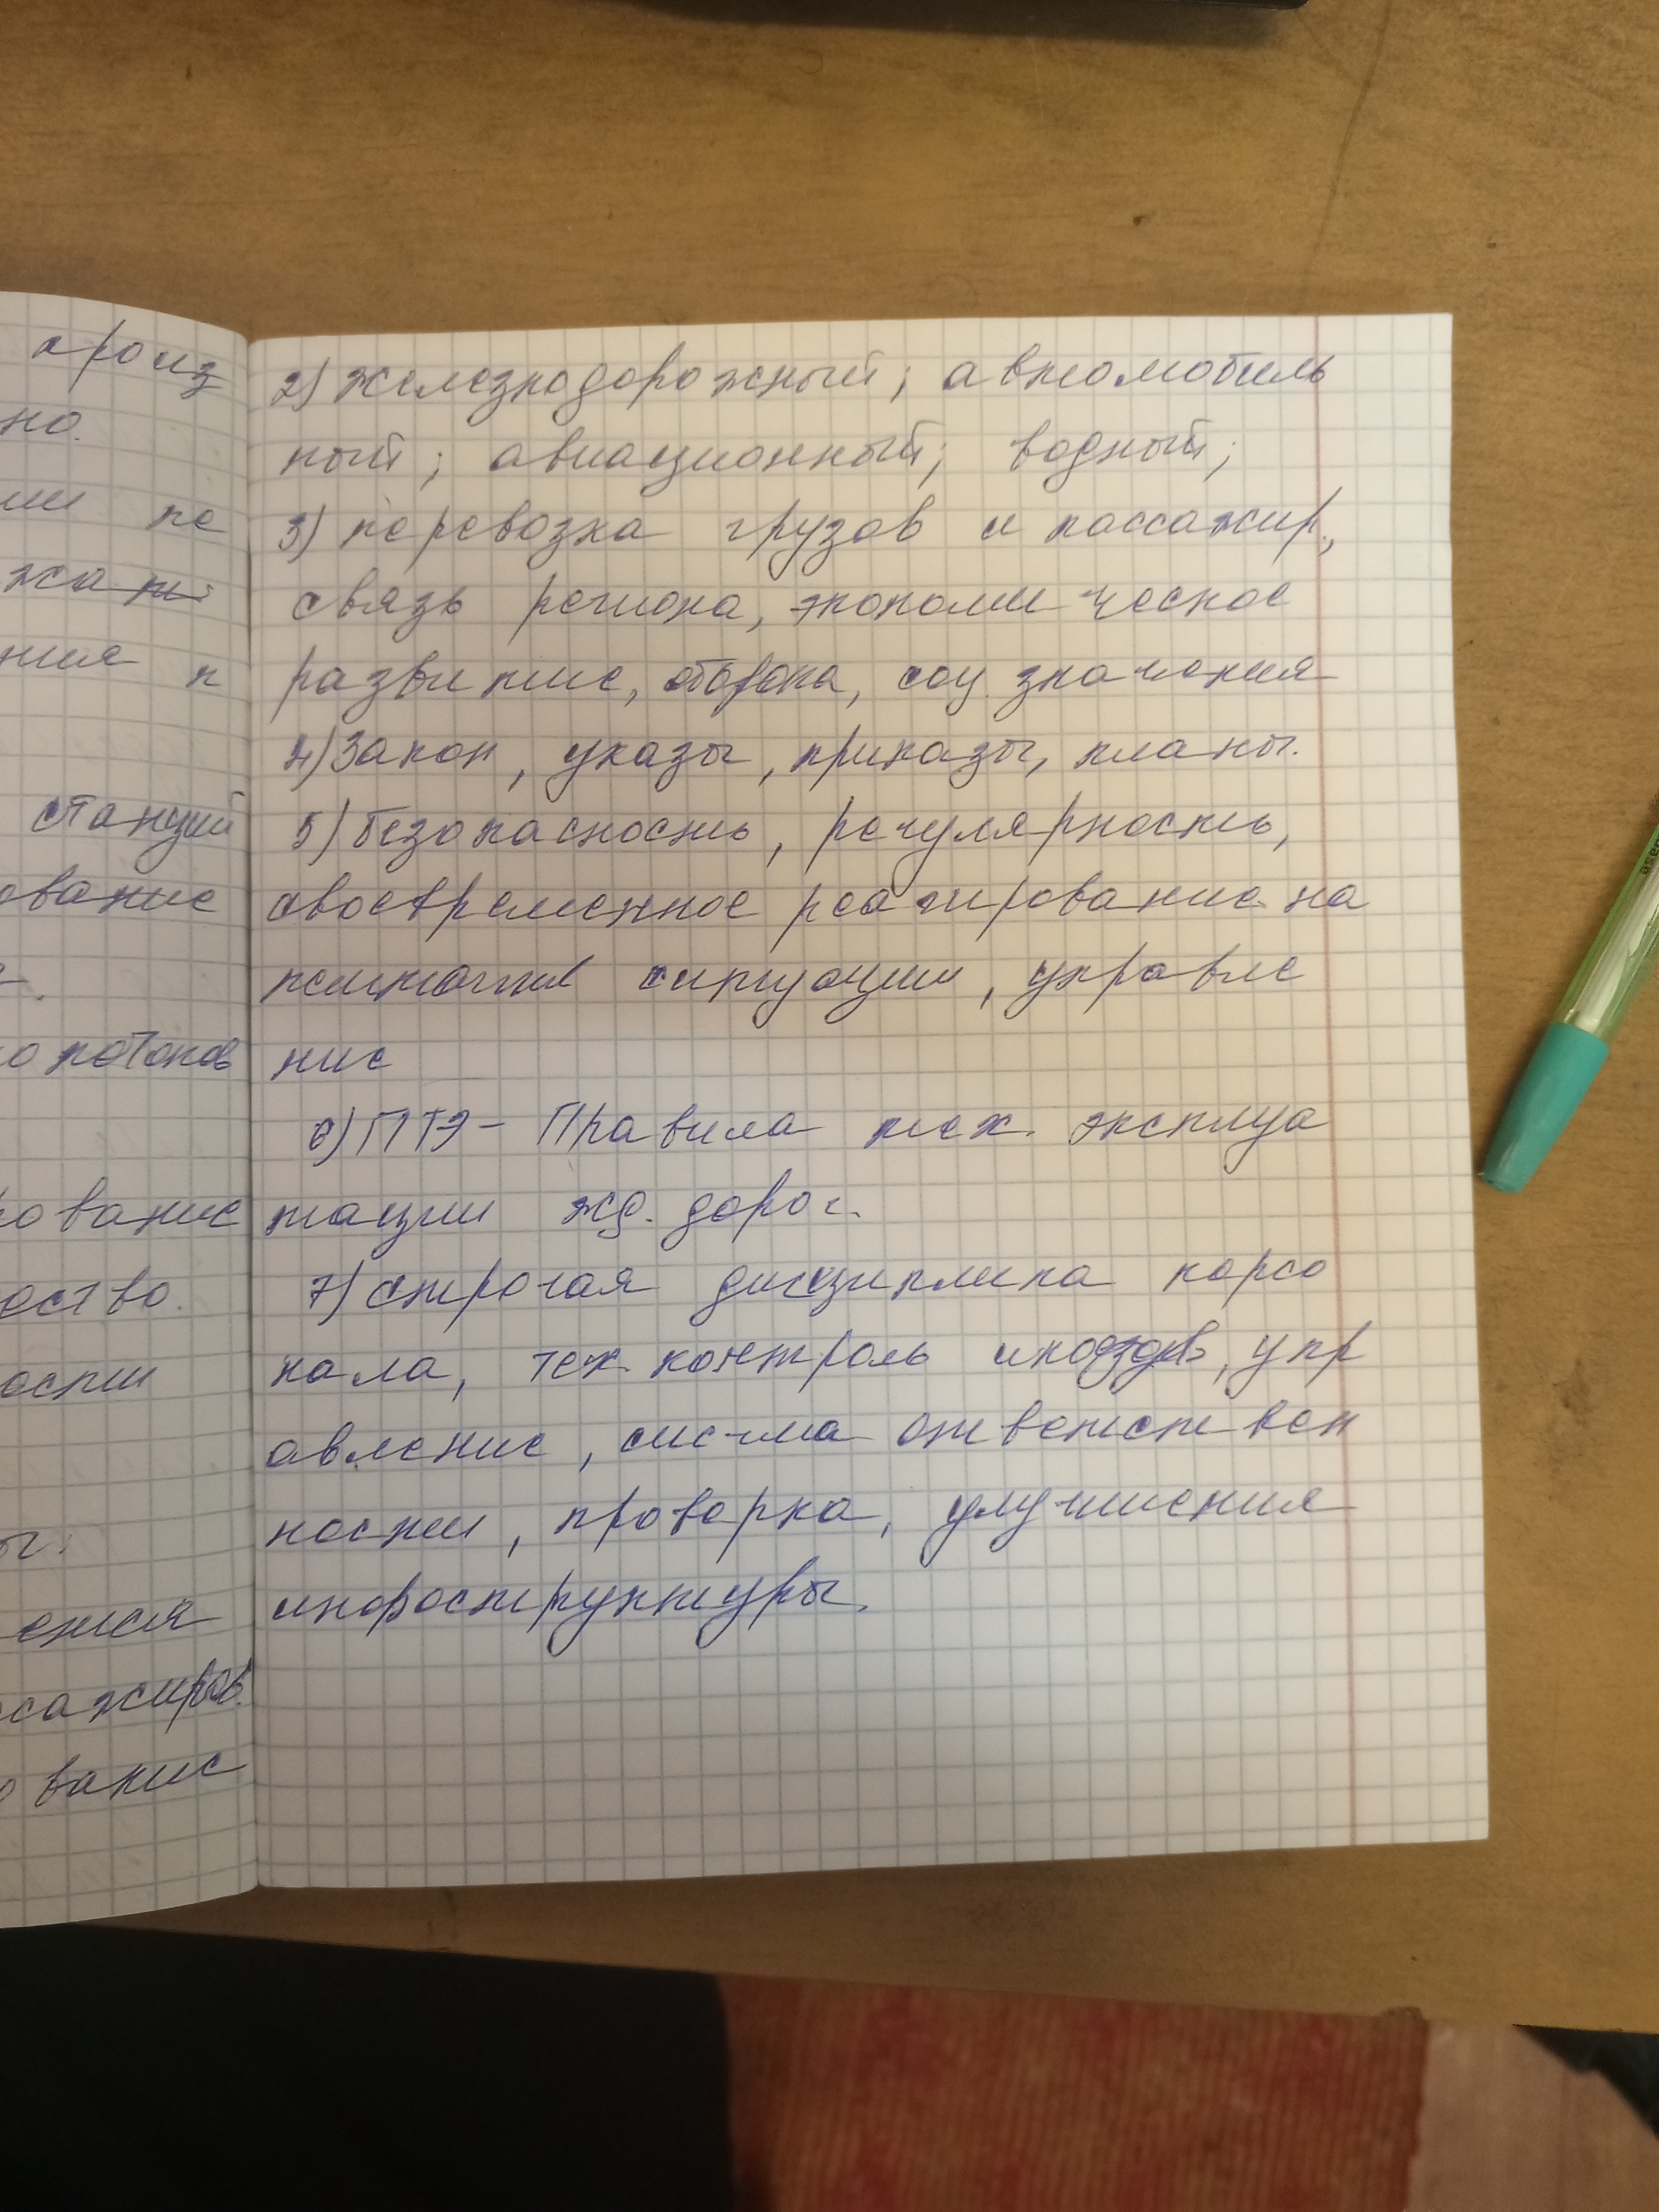 произ
но.
ми пе
жа
ния п
станций
ование
потоков
ование
ество.
ости
ы.
ется
сажиров.
ование
2) железнодорожный; автомобиль
ный; авиационный; водный;
3) перевозка грузов и пассажир.,
связь региона, экономическое
развитие, оборона, соц. значения
4) Закон, указы, приказы, планы.
5) безопасность, регулярность,
своевременное реагирование на
ситуации, управле
ние
6) ПТЭ - Правила тех. эксплуа
тации жд. дорог.
7) строгая дисциплина персо
нала, тех. контроль, упр
авление, сис-ма ответствен
ности, проверка, улучшения
инфроструктуры.